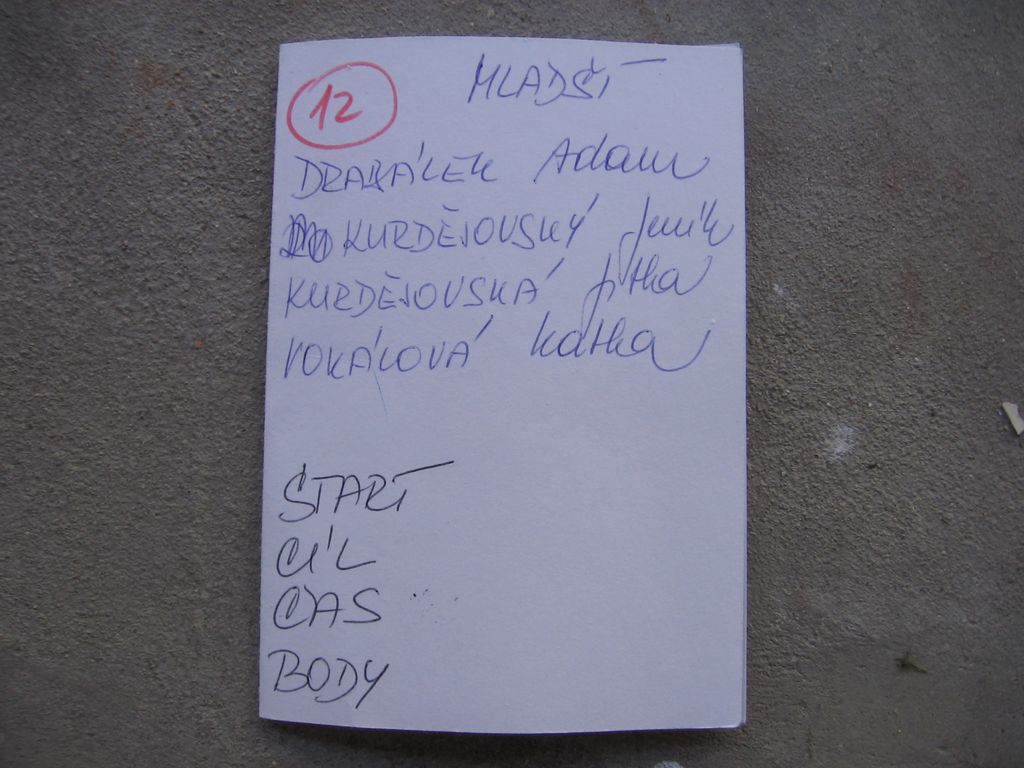 12
MLADŠÍ
DRABÁLEK Adam
KURDĚJOVSKÝ Jeník
KURDĚJOVSKÁ Jitka
VOKÁLOVÁ Katka
START
CÍL
ČAS
BODY